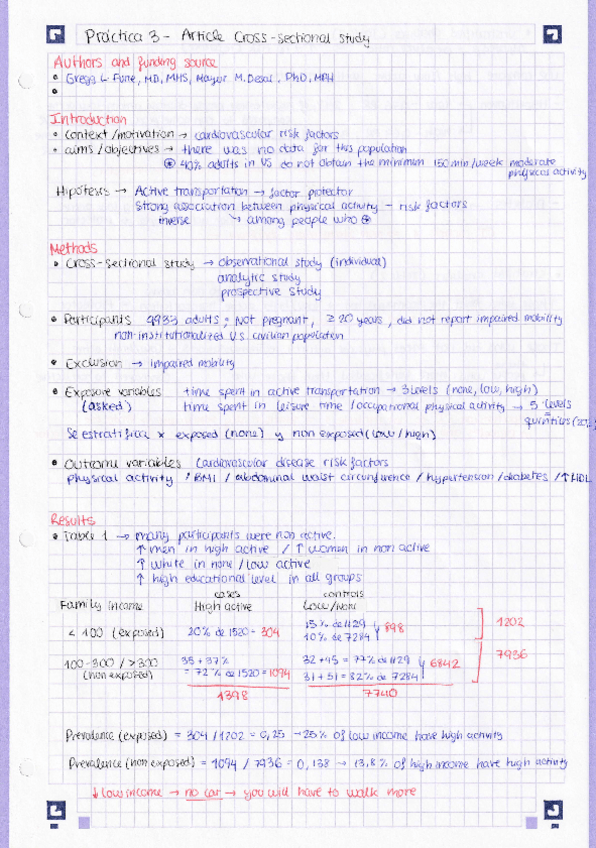 Práctica 3 - Article Cross-sectional study
Authors and funding source
• Gregg L. Furie, MD, MHS, Mayur M. Desai, PhD, MPH
•
Introduction
• Context/motivation → cardiovascular risk factors
• aims/objectives → there was no data for this population
⊛ 40% adults in US do not obtain the minimum 150 min/week moderate
physical activity
Hipótesis → Active transportation → factor protector
Strong association between physical activity - risk factors
inverse ↳ among people who ⊛
Methods
• Cross-sectional study → observational study (individual)
analytic study
prospective study
• Participants 4933 adults; Not pregnant, ≥ 20 years, did not report impaired mobility
non-institutionalized U.S. civilian population
• Exclusion → impaired mobility
• Exposure variables time spent in active transportation → 3 levels (none, low, high)
(asked) time spent in leisure time/occupational physical activity → 5 levels
quintiles (20%
Se estratifica x exposed (none) y non exposed (low/high)
• Outcome variables Cardiovascular disease risk factors
physical activity / BMI / abdominal waist circunference / hypertension/diabetes / ↑ HDL
Results
• Table 1 → many participants were non active.
↑ men in high active / ↑ women in non active
↑ white in none/low active
↑ high educational level in all groups
cases controls
Family income High active Low/None
< 100 (exposed) 20% de 1520 = 304 15% de 1129 898 1202
10% de 7284
100-300 / >300 35 + 37% 32 + 45 = 77% de 1129 6842 7936
(non exposed) = 72% de 1520 = 1094 31 + 51 = 82% de 7284
1398 7740
Prevalence (exposed) = 304/1202 = 0,25 → 25% of low income have high activity
Prevalence (non exposed) = 1094 / 7936 = 0,138 → 13,8% of high income have high activity
↓ low income → no car → you will have to walk more